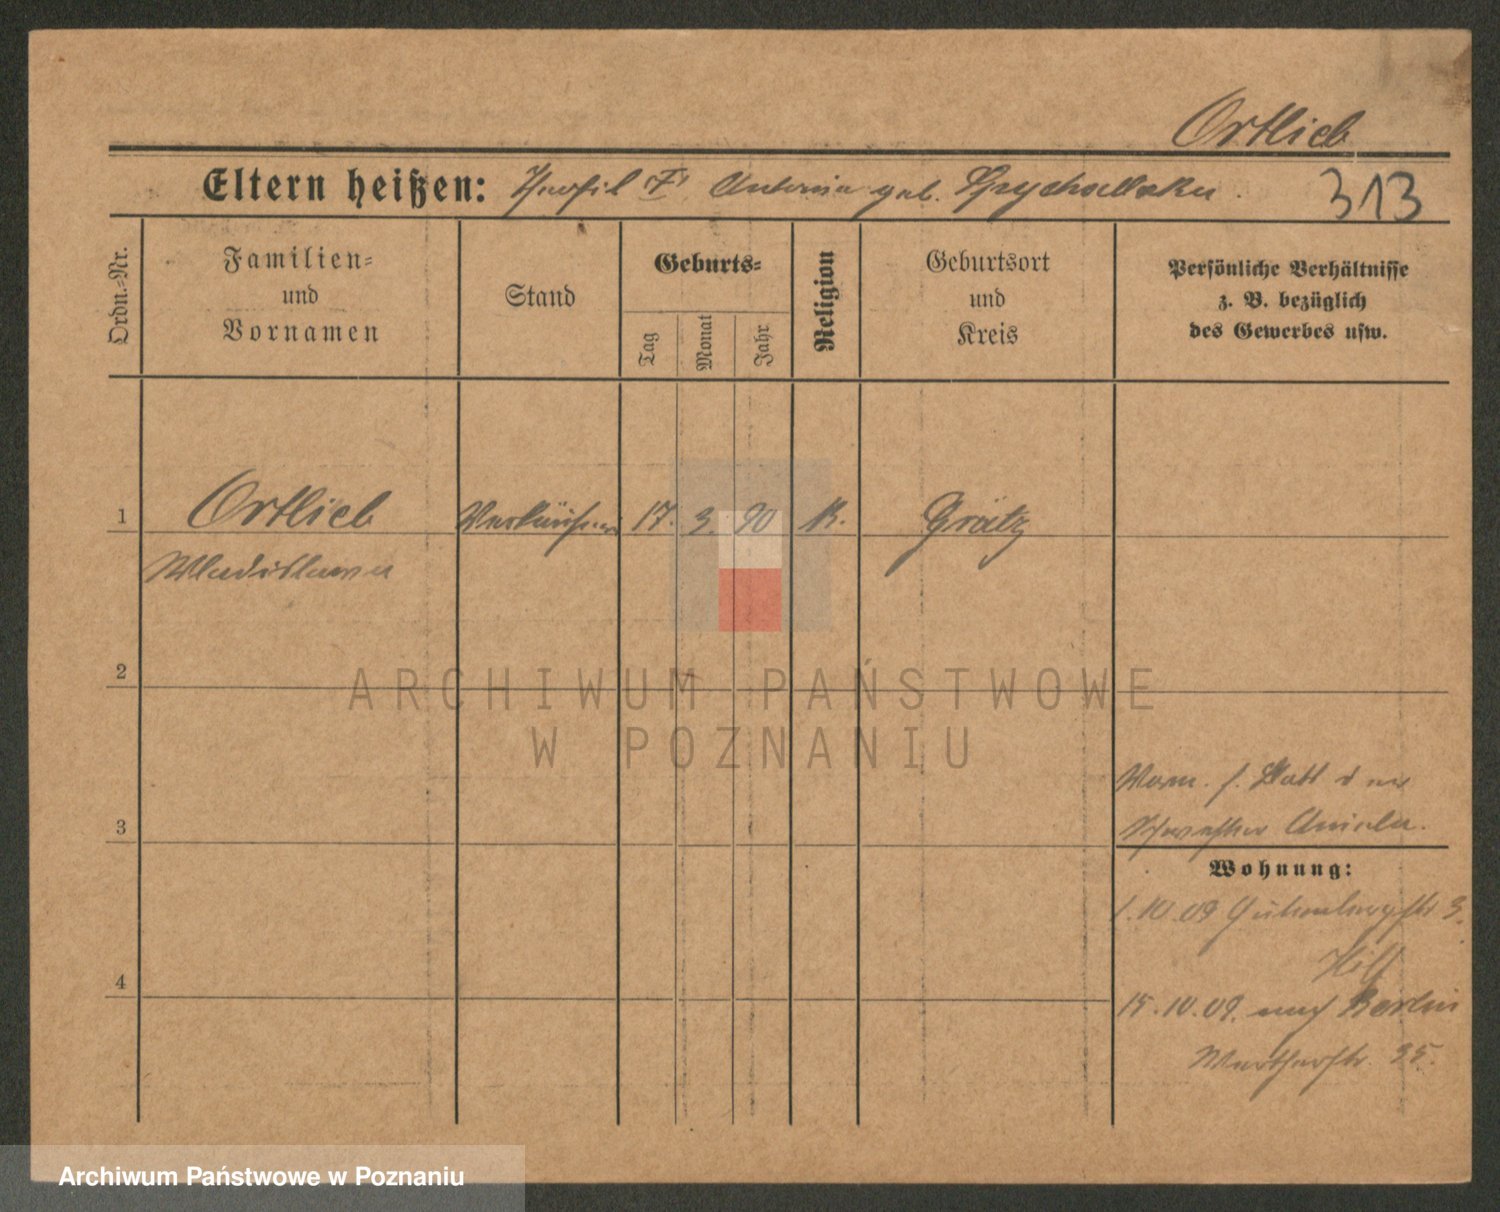 Ortlieb
Eltern heißen: Theofil † Antonie geb. Spychalska.
313
Ordn.-Nr.
Familien-
und
Vornamen
Stand
Geburts-
Tag
Monat
Jahr
Religion
Geburtsort
und
Kreis
Persönliche Verhältnisse
z. B. bezüglich
des Gewerbes usw.
1 Ortlieb Verkäuferin 17. 3. 90 K. Grätz
Wladislawa
2
ARCHIWUM PAŃSTWOWE
W POZNANIU
Verm. s. Blatt der
3 Schwester Aniela.
Wohnung:
1.10.09 Gutenbergstr 3.
4
15.10.09. nach Berlin
35.
Archiwum Państwowe w Poznaniu